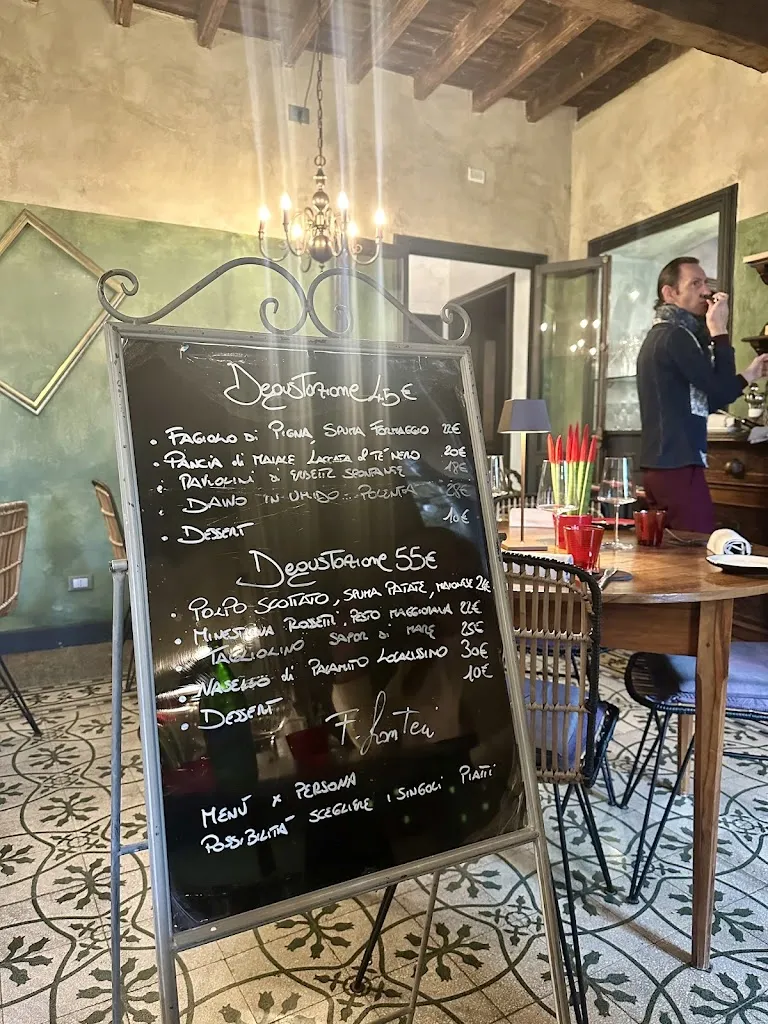 Degustazione 45€
• Fagiolo di Pigna, Spuma Formaggio 22€
• Pancia di Maiale Laccata al Te' Nero 20€
• Raviolini di Erbette Spontanee 18€
• Daino in umido... Polenta 28€
• Dessert 10€
Degustazione 55€
• Polpo Scottato, Spuma Patate, Maionese 24€
• Minestrina Rossetti, Pesto Maggiorana 22€
• Tagliolino Sapor di Mare 25€
• Nasello di Palamito Localissimo 30€
• Dessert 10€
Menù x Persona
Possibilità scegliere i singoli Piatti